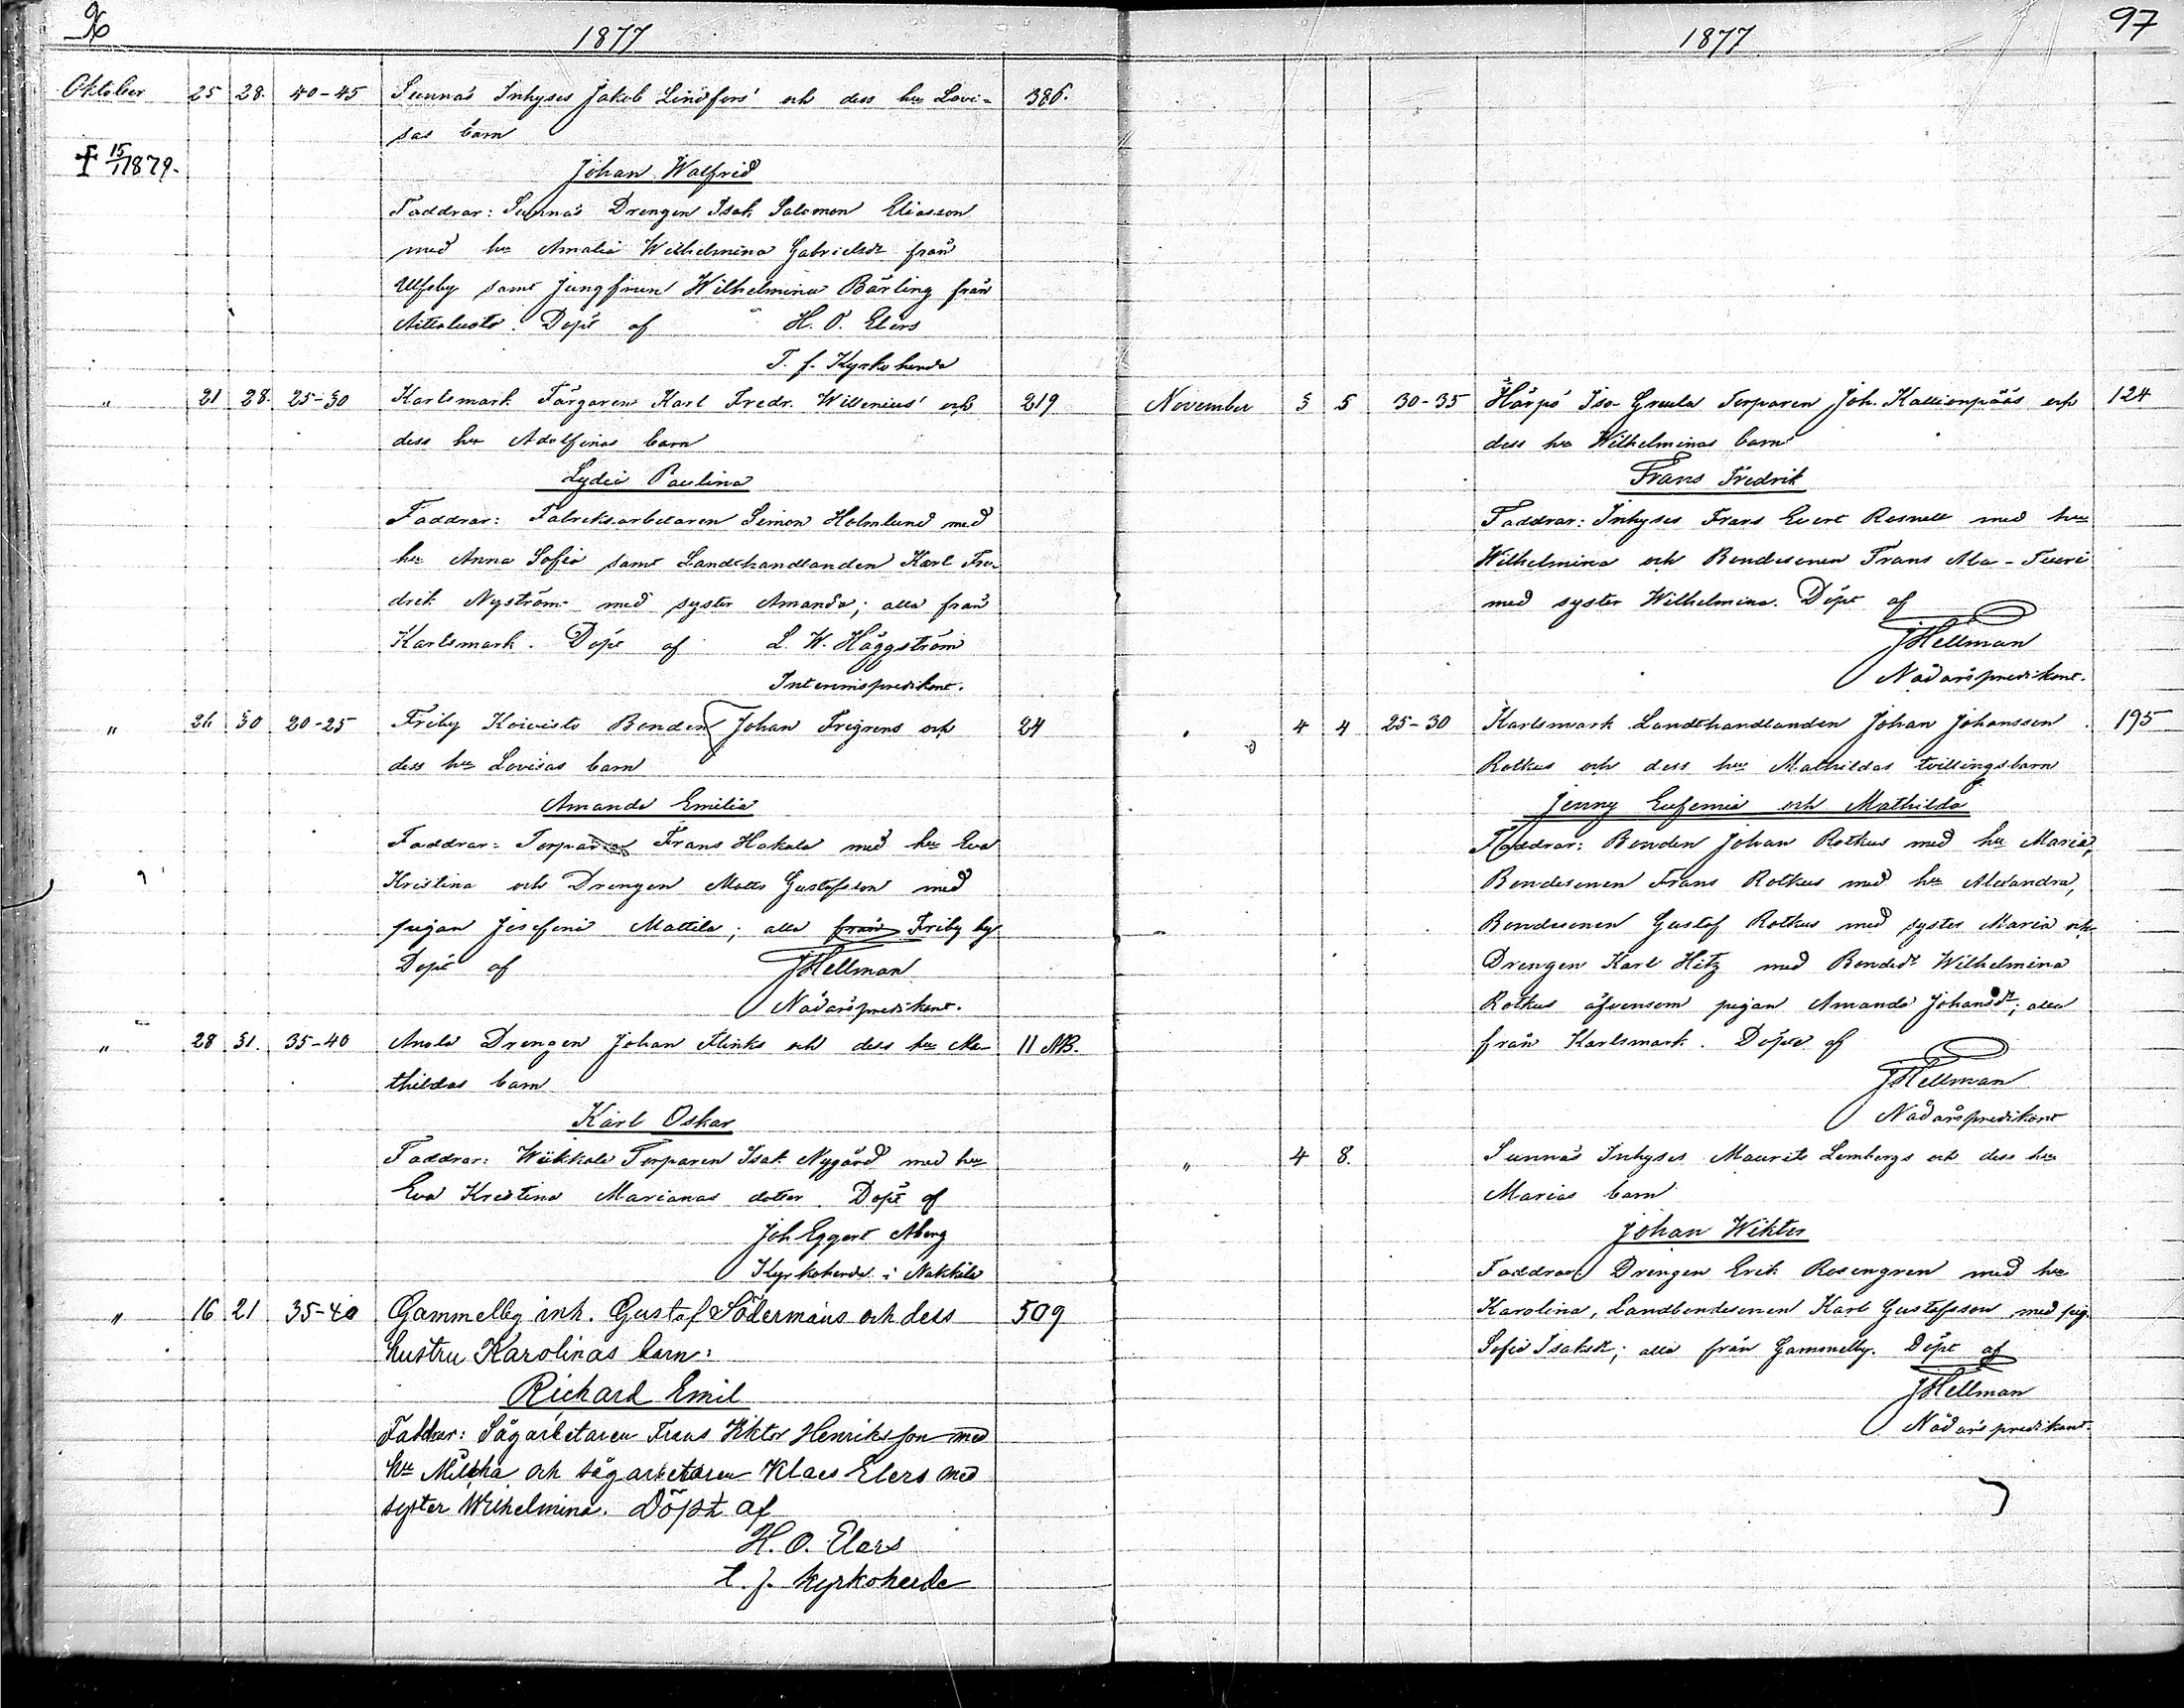 96
1877
Oktober 25 28. 40-45 Sunnäs Inhyses Jakob Lindfors' och dess hu Lovi- 386.
sas barn
† 15/1 1879.
Johan Walfrid
Faddrar: Sunnäs Drengen Isak Salomon Eliasson
med hu Amalia Wilhelmina Gabrielsdr från
Ulfsby samt jungfrun Wilhelmina Bärling från
Aittaluoto. Döpt af H. O. Elers
T. f. Kyrkoherde
" 21 28. 25-30 Karlsmark Färgaren Karl Fredr. Willenius' och 219
dess hu Adolfinas barn
Lydia Paulina
Faddrar: Fabriksarbetaren Simon Holmlund med
hu Anna Sofia samt Landthandlanden Karl Fre-
drik Nyström med syster Amanda; alla från
Karlsmark. Döpt af L. W. Häggström
Interimspredikant.
" 26 30 20-25 Friby Koivisto Bonden Johan Frigrens och 24
dess hu Lovisas barn
Amanda Emilia
Faddrar: Torparen Frans Hakala med hu Eva
Kristina och Drengen Matts Gustafsson med
pigan Josefina Mattila; alla från Friby by
Döpt af JHellman
Nådårspredikant.
" 28 31. 35-40 Anola Drengen Johan Flinks och dess hu Ma- 11 NB.
thildas barn
Karl Oskar
Faddrar: Wiikkala Torparen Isak Nygård med hu
Eva Kristina Marianas dotter. Döpt af
Joh Eggert Åberg
Kyrkoherde i Nakkila
" 16 21 35-40 Gammelby inh. Gustaf Södermans och dess 509
hustru Karolinas barn:
Richard Emil
Faddrar: Sågarbetaren Frans Viktor Henriksson med
hu och sågarbetaren Klaes Elers med
syster Wilhelmina. Döpt af
H. O. Elers
t. f. kyrkoherde
97
1877
November 3 5 30-35 Härpö Iso-Gruula Torparen Joh. Kallionpääs och 124
dess hu Wilhelminas barn
Frans Fredrik
Faddrar: Inhyses Frans Evert Rosnell med hu
Wilhelmina och Bondesonen Frans Ala-Tuuri
med syster Wilhelmina. Döpt af
JHellman
Nådårspredikant.
" 4 4 25-30 Karlsmark Landthandlanden Johan Johansson 195
Rotkus och dess hu Mathildas tvillingsbarn
Jenny Eufemia och Mathilda
Faddrar: Bonden Johan Rotkus med hu Maria,
Bondesonen Frans Rotkus med hu Alexandra,
Bondesonen Gustaf Rotkus med syster Maria och
Drengen Karl Hitz med Bondedr Wilhelmina
Rotkus äfvensom pigan Amanda Johansdr; alla
från Karlsmark. Döpte af
JHellman
Nådårspredikant
" 4 8. Sunnäs Inhyses Maurits Lembergs och dess hu
Marias barn
Johan Wiktor
Faddrar Drengen Erik Rosengren med hu
Karolina, Landbondesonen Karl Gustafsson med pig.
Sofia Isaksdr; alla från Gammelby. Döpt af
JHellman
Nådårspredikant.